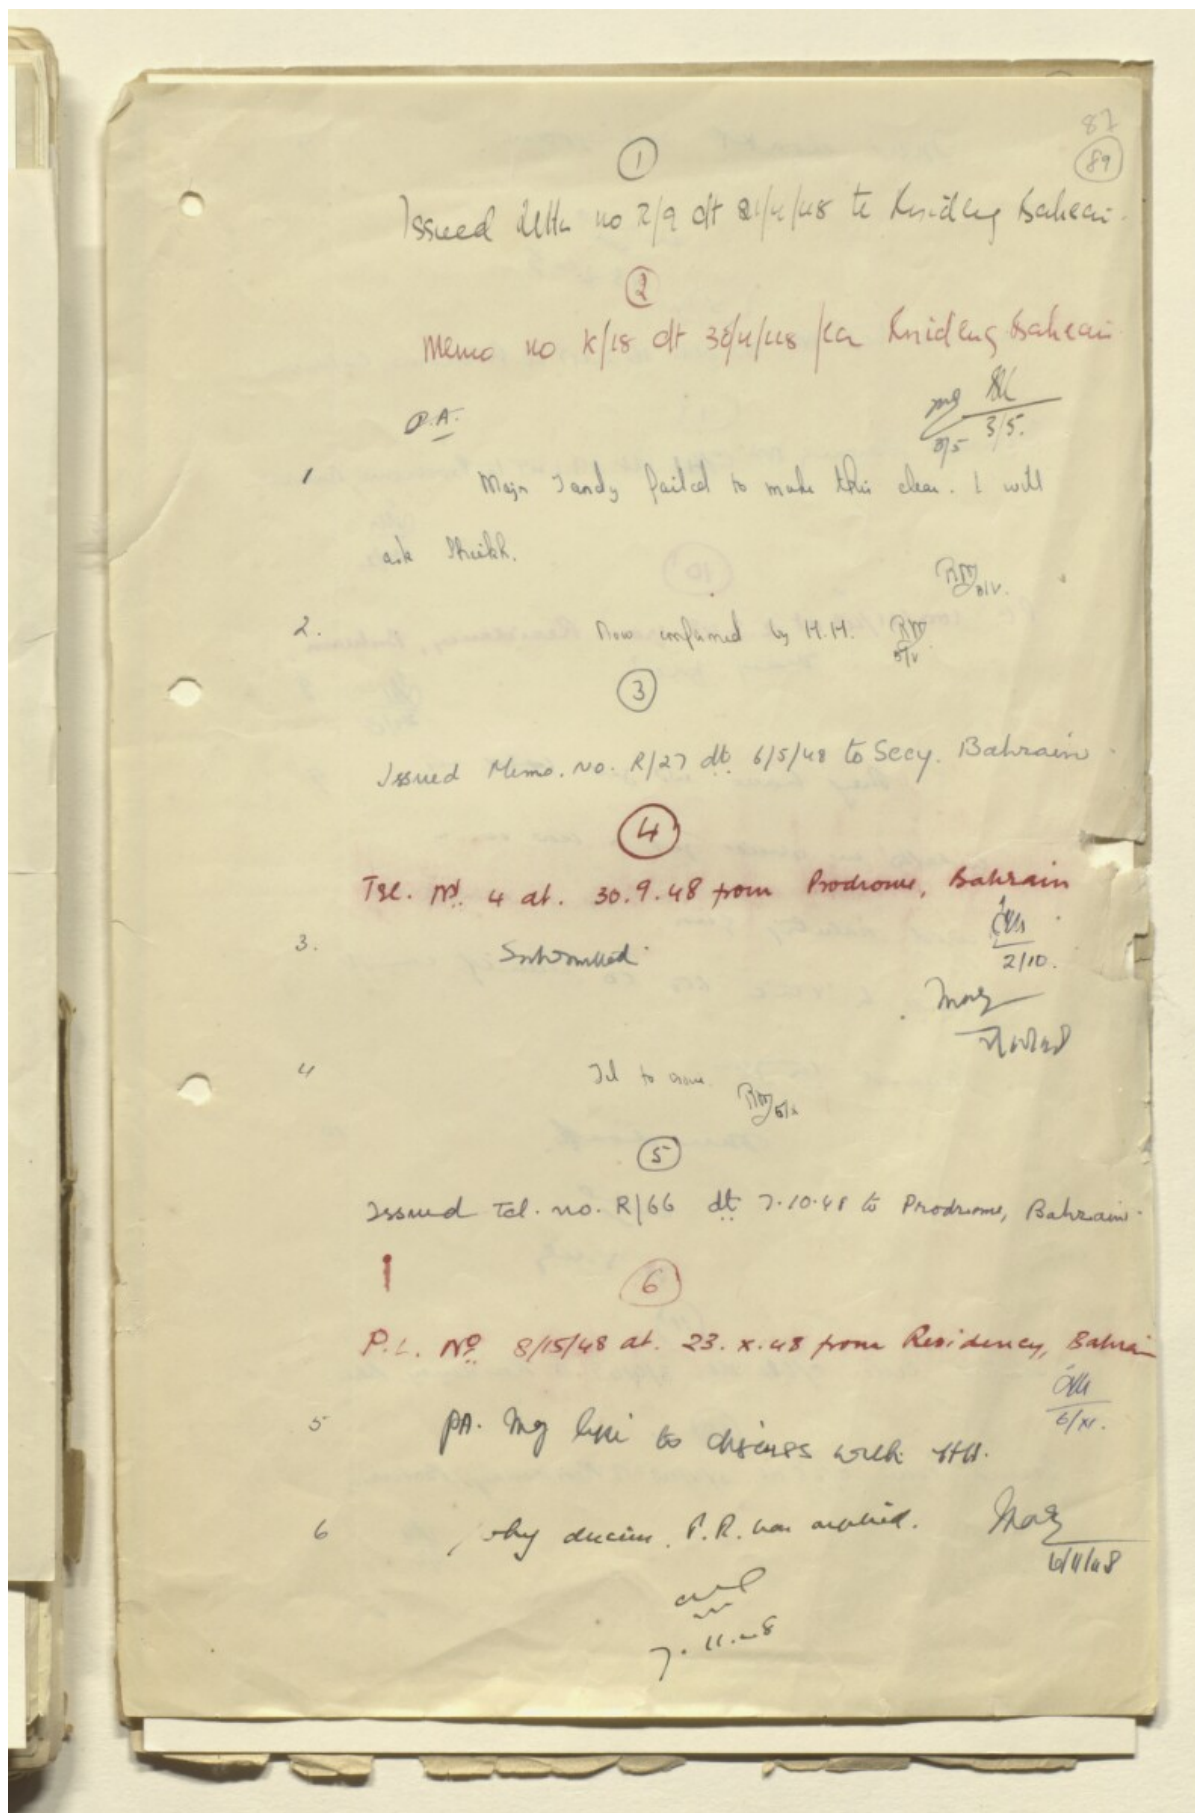 87
89
1
Issued no R/9 dt /4/48 to Residency Bahrain.
2
Memo no K/18 dt 30/4/48 from Residency Bahrain
P.A.
3/5.
3/5
1 Major Tandy failed to make this clear. I will
ask Sheikh.
2. Now confirmed by H.H.
3
Issued Memo. No. R/27 dt. 6/5/48 to Secy. Bahrain.
4
Tel. No. 4 dt. 30.9.48 from Prodrome, Bahrain
3. Submitted.
2/10.
4 Tel to
5
Issued Tel. no. R/66 dt 7.10.48 to Prodrome, Bahrain.
6
P.L. No. 8/15/48 dt. 23.x.48 from Residency, Bahrain
6/xi.
5 PA. May like to discuss with HH.
6 P.R. has
6/11/48
7.11.48